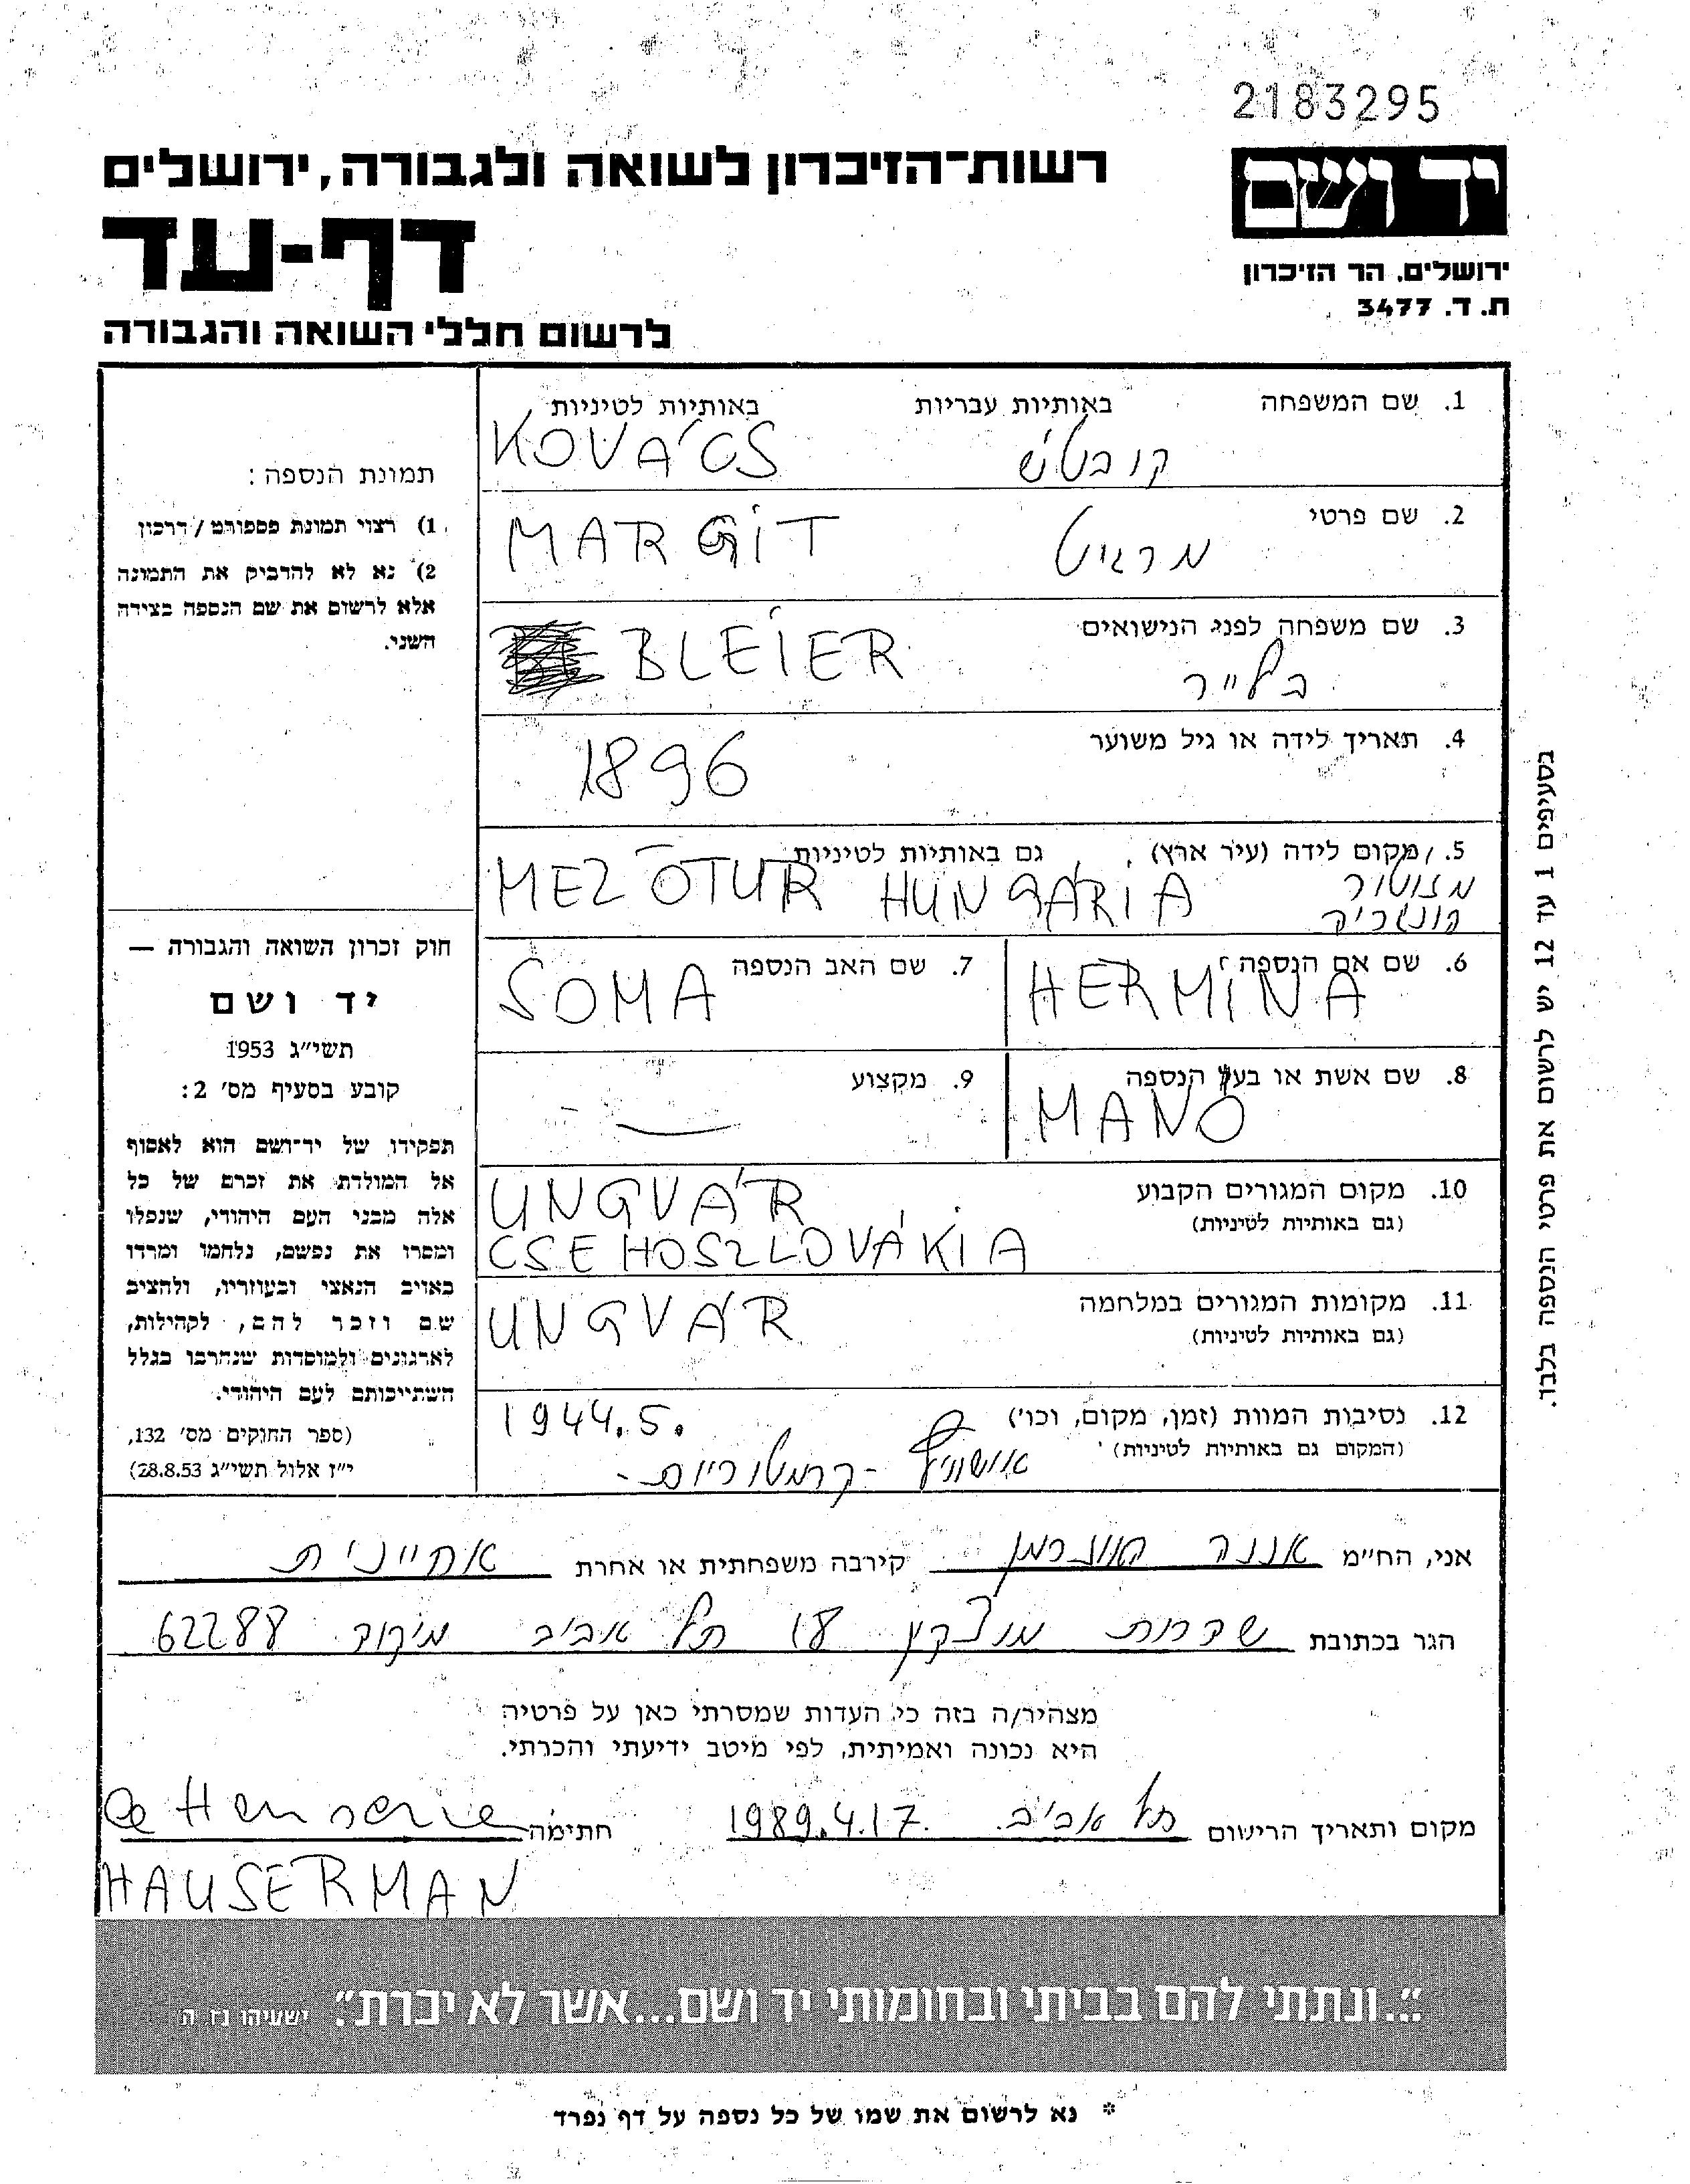 2183295
יד ושם
ירושלים. הר הזיכרון
ת. ד. 3477
רשות־הזיכרון לשואה ולגבורה, ירושלים
דף-עד
לרשום חללי השואה והגבורה
1. שם המשפחה באותיות עבריות באותיות לטיניות
קובטש KOVÁCS
2. שם פרטי
מרגיט MARGIT
3. שם משפחה לפני הנישואים
בלייר BLEIER
4. תאריך לידה או גיל משוער
1896
5. מקום לידה (עיר ארץ) גם באותיות לטיניות
מזוטור MEZŌTUR HUNGÁRIA
הונגריה
6. שם אם הנספה
HERMINA
7. שם האב הנספה
SOMA
8. שם אשת או בעל הנספה
MANO
9. מקצוע
—
10. מקום המגורים הקבוע
(גם באותיות לטיניות)
UNGVÁR
CSEHOSZLOVÁKIA
11. מקומות המגורים במלחמה
(גם באותיות לטיניות)
UNGVÁR
12. נסיבות המוות (זמן, מקום, וכו')
(המקום גם באותיות לטיניות)
1944.5.
אושוויץ - קרמטוריום -
תמונת הנספה:
1) רצוי תמונת פספורט/דרכון
2) נא לא להדביק את התמונה
אלא לרשום את שם הנספה בצידה
השני.
חוק זכרון השואה והגבורה —
יד ושם
תשי״ג 1953
קובע בסעיף מס' 2:
תפקידו של יד־ושם הוא לאסוף
אל המולדת את זכרם של כל
אלה מבני העם היהודי, שנפלו
ומסרו את נפשם, נלחמו ומרדו
באויב הנאצי ובעוזריו, ולהציב
שם וזכר להם, לקהילות,
לארגונים ולמוסדות שנחרבו בגלל
השתייכותם לעם היהודי.
(ספר החוקים מס' 132,
י״ז אלול תשי״ג 28.8.53)
בסעיפים 1 עד 12 יש לרשום את פרטי הנספה בלבד.
אני, החי״מ אננה האוזרמן קירבה משפחתית או אחרת אחיינית
הגר בכתובת שדרות מוצקין 18 תל אביב מיקוד 62288
מצהיר/ה בזה כי העדות שמסרתי כאן על פרטיה
היא נכונה ואמיתית, לפי מיטב ידיעתי והכרתי.
מקום ותאריך הרישום תל אביב. 1989.4.17. חתימה
HAUSERMAN
"...ונתתי להם בביתי ובחומותי יד ושם...אשר לא יכרת" ישעיהו נז. ה
* נא לרשום את שמו של כל נספה על דף נפרד